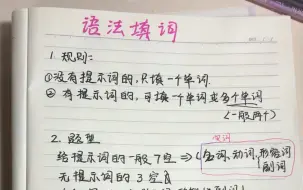 语法填词
1. 规则:
①没有提示词的,只填一个单词.
② 有提示词的,可填一个单词或多个单词
(一般两个)
2. 题型
实词
给提示词的一般7空 ⇒ (名词、动词、形容词
副词
无提示词的3空